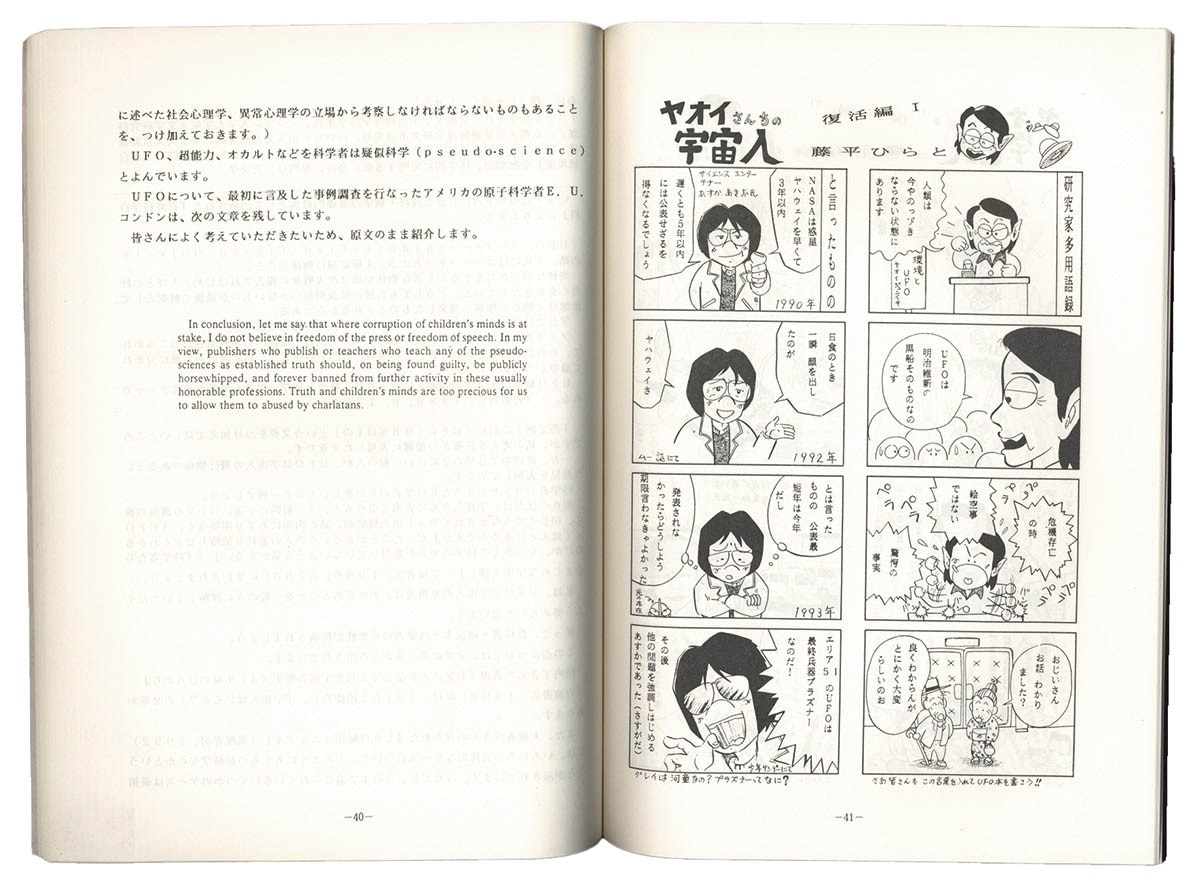 に述べた社会心理学、異常心理学の立場から考察しなければならないものもあること
を、つけ加えておきます。)
UFO、超能力、オカルトなどを科学者は疑似科学(pseudo-science)
とよんでいます。
UFOについて、最初に言及した事例調査を行なったアメリカの原子科学者E．U．
コンドンは、次の文章を残しています。
皆さんによく考えていただきたいため、原文のまま紹介します。
In conclusion, let me say that where corruption of children's minds is at
stake, I do not believe in freedom of the press or freedom of speech. In my
view, publishers who publish or teachers who teach any of the pseudo-
sciences as established truth should, on being found guilty, be publicly
horsewhipped, and forever banned from further activity in these usually
honorable professions. Truth and children's minds are too precious for us
to allow them to abused by charlatans.
—40—
ヤオイさんちの
宇宙人
復活編 I
藤平ひらと
研究家多用語録
人類は
今やのっぴき
ならない状態に
あります
環境と
UFO
UFOは
明治維新の
黒船そのものなの
です
ペラペラ
危機存亡
の時
絵空事
ではない
驚愕の
事実
おじいさん
お話 わかり
ました?
良くわからんが
とにかく大変
らしいのお
さあ皆さんも この言葉を入れてUFO本を書こう!!
と言ったものの
サイエンス エンター
テナー
あすか あきお氏
NASAは惑星
ヤハウェイを早くて
3年以内
遅くとも5年以内
には公表せざるを
得なくなるでしょう
1990年
日食のとき
一瞬 顔を出し
たのが
ヤハウェイさ
ムー誌にて
1992年
とは言った
ものの 公表最
短年は今年
だし
発表されな
かったらどうしよう
期限言わなきゃよかった
1993年
エリア51のUFOは
最終兵器プラズナー
なのだ!
その後
他の問題を強調しはじめる
あすかであった(さすがだ)
少年サンデーにて
グレイは 河童なの? プラズナーってなに?
—41—